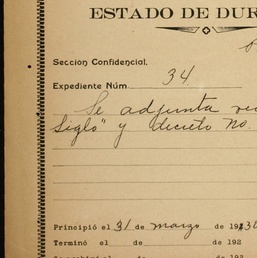 ESTADO DE DUR
Sección Confidencial.
Expediente Núm. 34
Se adjunta
Siglo" y decreto No.
Principió el 31 de marzo de 19
Terminó el de de 192